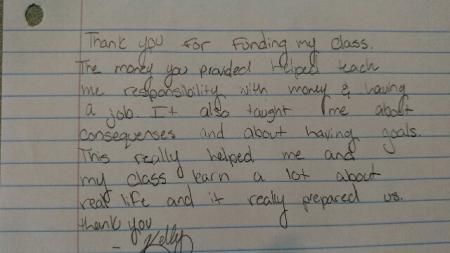 Thank you for Funding my class.
The money you provided Helped teach
me responsibility with money & having
a job. It also taught me about
consequenses and about having goals.
This really helped me and
my class learn a lot about
real life and it really prepared us.
thank you
- Kelly